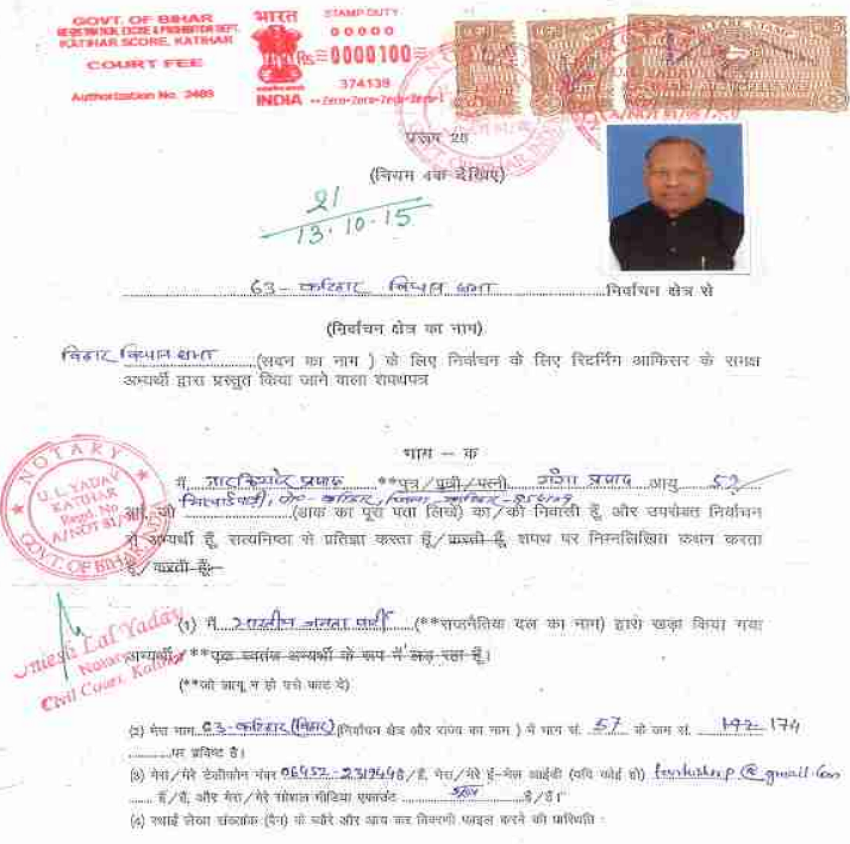 GOVT. OF BIHAR
REGISTRATION, EXCISE & PROHIBITION DEPT.
KATIHAR SCORE, KATIHAR
COURT FEE
Authorization No. 2489
भारत
INDIA
STAMP DUTY
00000
Rs.≡0000100≡
374139
Zero-Zero-Zero-Zero-1
प्ररूप 26
(नियम 4क देखिए)
21
13.10.15
63 - कटिहार विधान सभा निर्वाचन क्षेत्र से
(निर्वाचन क्षेत्र का नाम)
बिहार विधान सभा (सदन का नाम ) के लिए निर्वाचन के लिए रिटर्निंग आफिसर के समक्ष
अभ्यर्थी द्वारा प्रस्तुत किया जाने वाला शपथपत्र
भाग – क
NOTARY
U. L. YADAV
KATIHAR
Regd. No
A/NOT 81/
GOVT. OF BIHAR
मैं प्रसाद **पुत्र/पुत्री/पत्नी गंगा प्रसाद आयु 59
जो (डाक का पूरा पता लिखें) का/की निवासी हूँ और उपरोक्त निर्वाचन
से अभ्यर्थी हूँ, सत्यनिष्ठा से प्रतिज्ञा करता हूँ/करती हूँ, शपथ पर निम्नलिखित कथन करता
हूँ/करती हूँ:-
(1) मैं भारतीय जनता पार्टी (**राजनैतिक दल का नाम) द्वारा खड़ा किया गया
अभ्यर्थी/**एक स्वतंत्र अभ्यर्थी के रूप में लड़ रहा हूँ।
Lal Yadav
Notary
Civil Court, Katihar
(**जो लागू न हो उसे काट दें)
(2) मेरा नाम 63-कटिहार (बिहार) (निर्वाचन क्षेत्र और राज्य का नाम ) में भाग सं. 57 के क्रम सं. 174
पर प्रविष्ट है।
(3) मेरा/मेरे टेलीफोन नंबर है/हैं, मेरा/मेरे ई-मेल आईडी (यदि कोई हो) @gmail.com
है/हैं, और मेरा/मेरे सोशल मीडिया एकाउंट है/हैं।
(4) स्थाई लेखा संख्यांक (पैन) के ब्यौरे और आय कर विवरणी फाइल करने की प्रास्थिति :